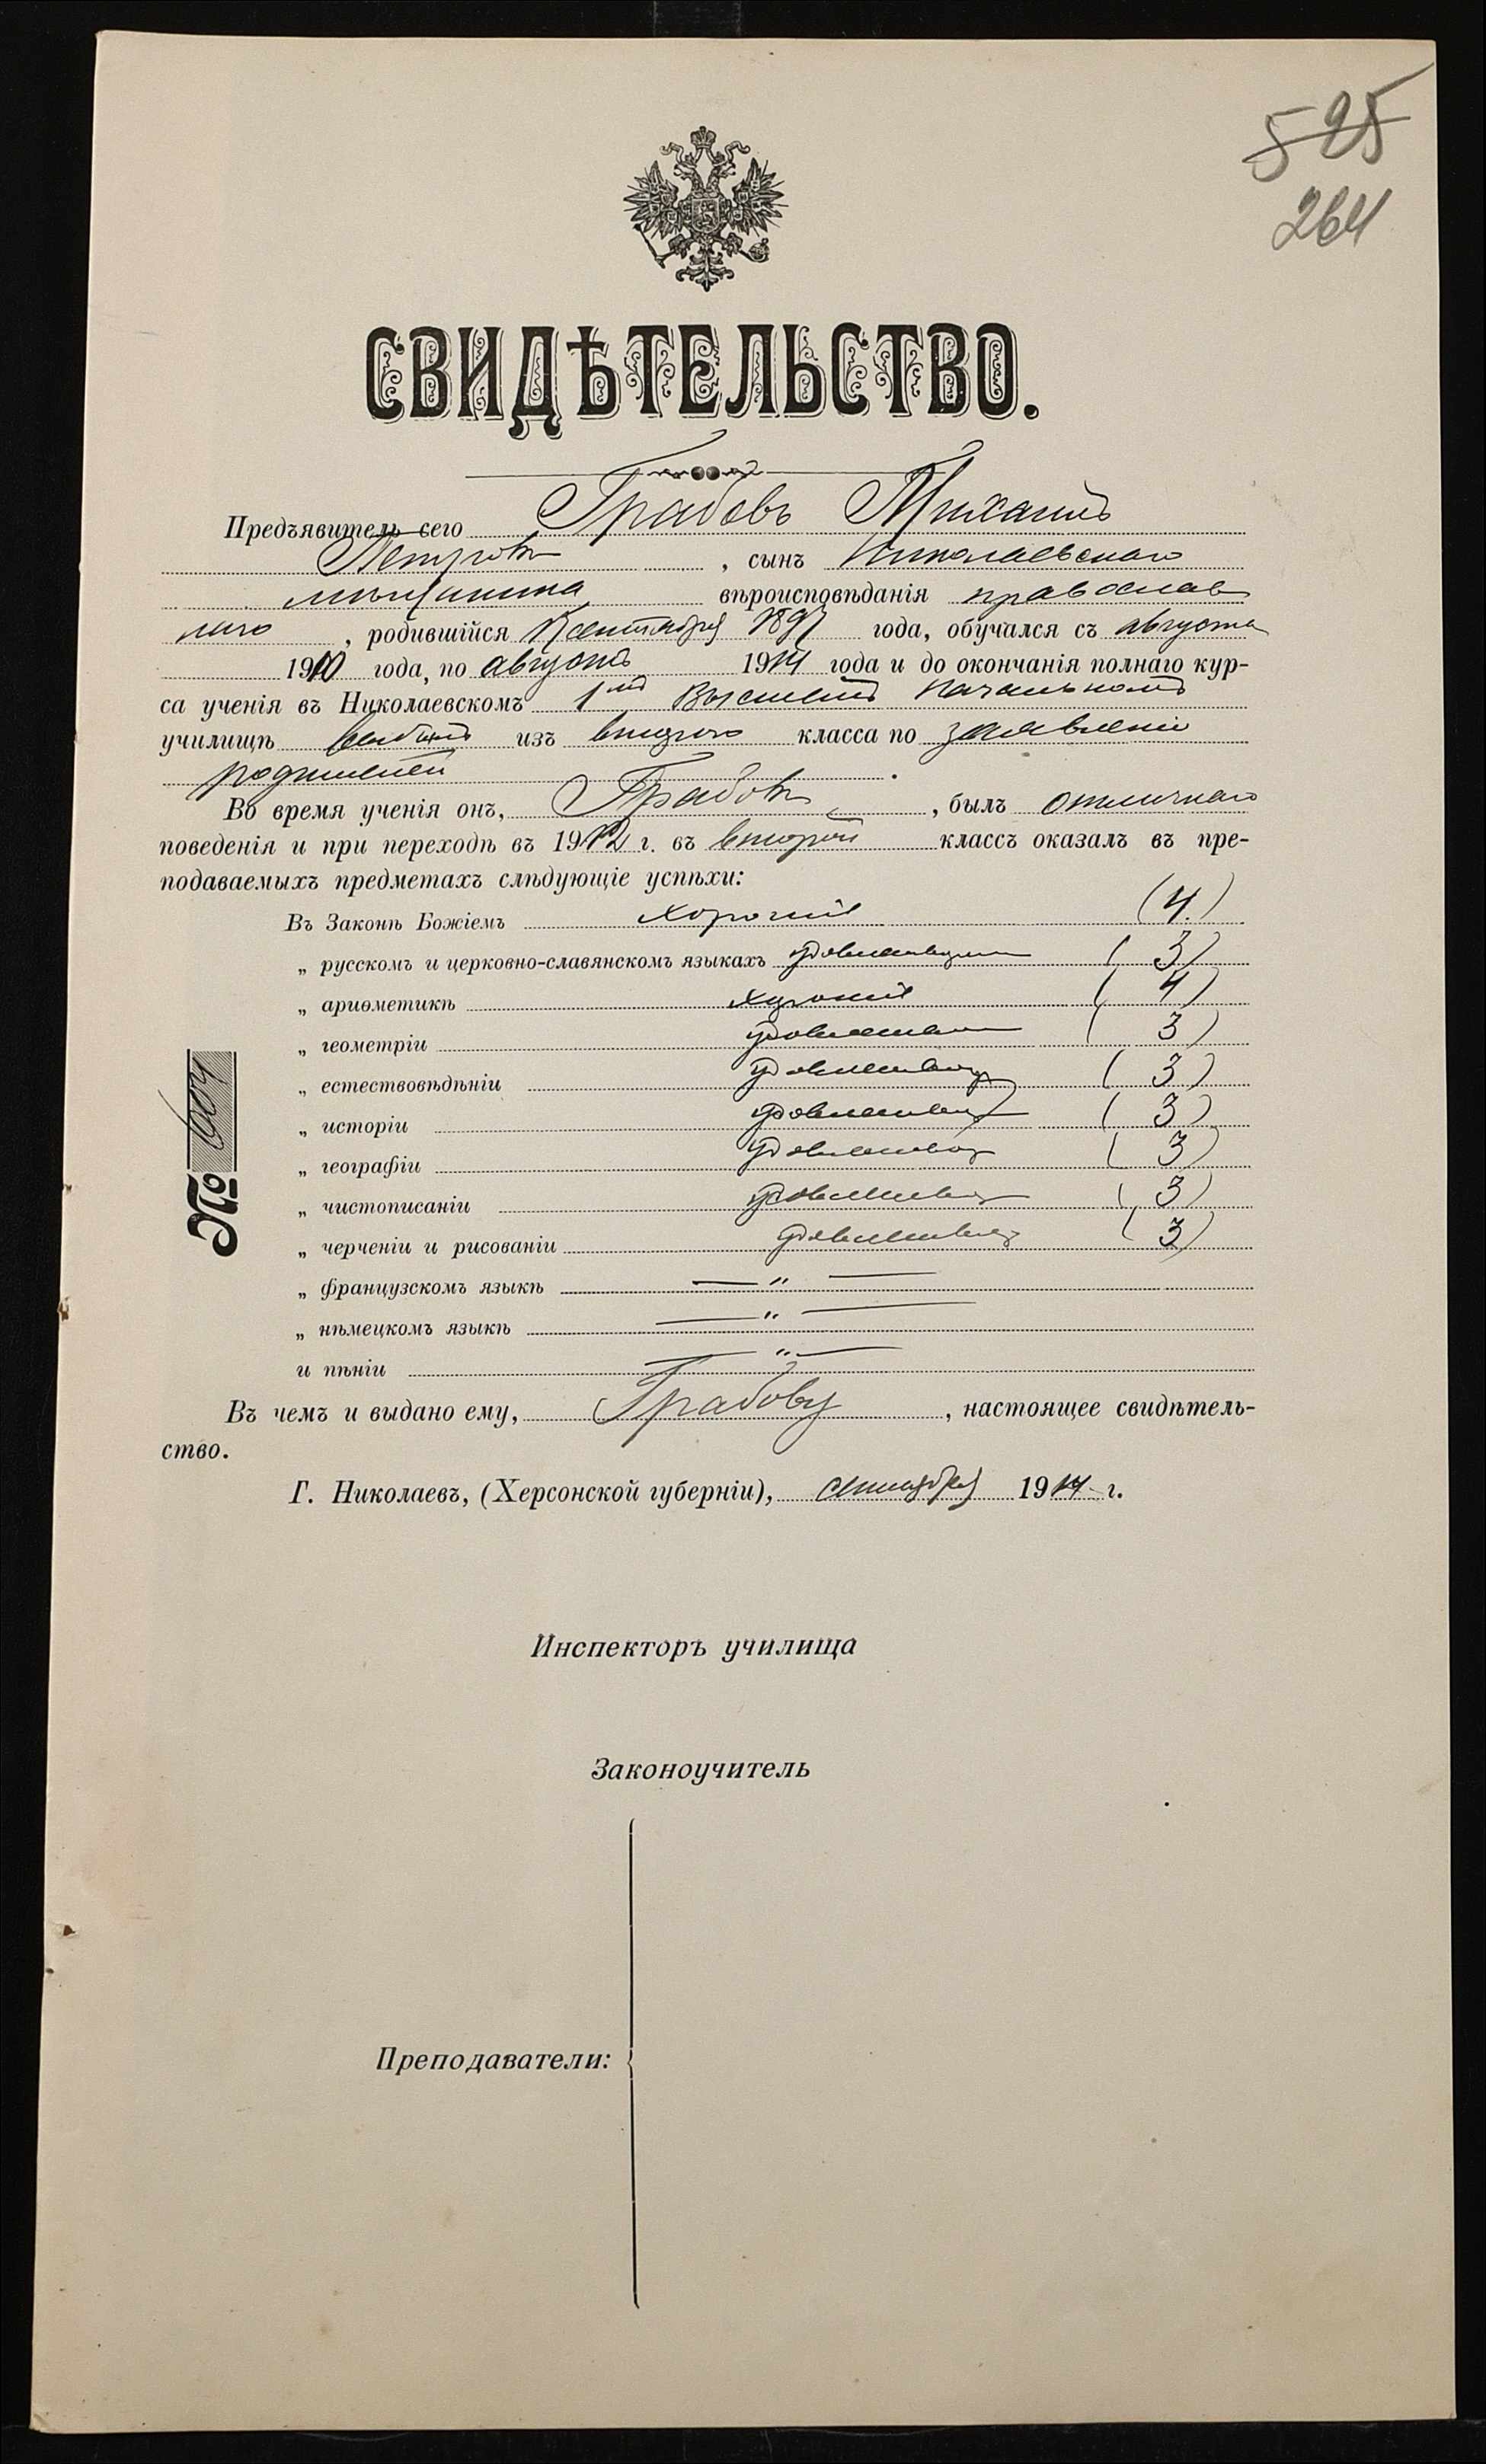 525
264
СВИДѢТЕЛЬСТВО.
Предъявитель сего Грабовъ Михаилъ
Петровъ, сынъ Николаевскаго
мѣщанина вѣроисповѣданія православ
наго, родившійся сентября 1897 года, обучался съ августа
1910 года, по августъ 1914 года и до окончанія полнаго кур-
са ученія въ Николаевскомъ 1мъ Высшемъ Начальномъ
училищѣ выбылъ изъ второго класса по заявленію
родителей.
Во время ученія онъ, Грабовъ, былъ отличнаго
поведенія и при переходѣ въ 1912 г. въ второй классъ оказалъ въ пре-
подаваемыхъ предметахъ слѣдующіе успѣхи:
Въ Законѣ Божіемъ хорошіе (4.)
„ русскомъ и церковно-славянскомъ языкахъ (3)
„ ариѳметикѣ хорошіе (4)
„ геометріи (3)
„ естествовѣдѣніи (3)
„ исторіи (3)
„ географіи (3)
„ чистописаніи (3)
„ черченіи и рисованіи (3)
„ французскомъ языкѣ — " —
„ нѣмецкомъ языкѣ — " —
и пѣніи — " —
Въ чемъ и выдано ему, Грабову, настоящее свидѣтель-
ство.
Г. Николаевъ, (Херсонской губерніи), сентября 1914 г.
№ 604
Инспекторъ училища
Законоучитель
Преподаватели: